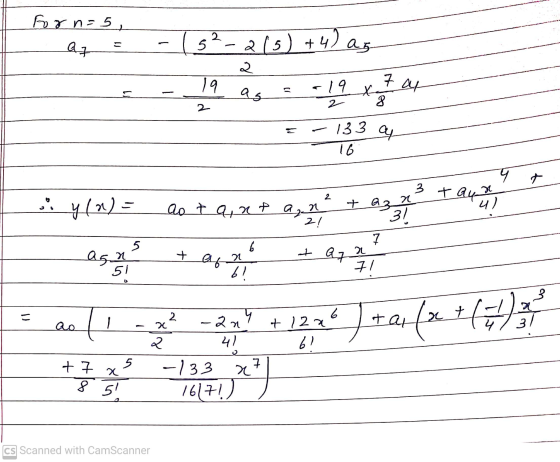 For n = 5,
a₇ = - (5² - 2(5) + 4) a₅ / 2
= - 19/2 a₅ = -19/2 × 7/8 a₁
= - 133 a₁ / 16
∴ y(x) = a₀ + a₁x + a₂ x²/2! + a₃ x³/3! + a₄ x⁴/4! +
a₅ x⁵/5! + a₆ x⁶/6! + a₇ x⁷/7!
= a₀ ( 1 - x²/2 - 2x⁴/4! + 12x⁶/6! ) + a₁ ( x + (-1/4) x³/3!
+ 7/8 x⁵/5! -133 x⁷/16(7!) )
CS Scanned with CamScanner